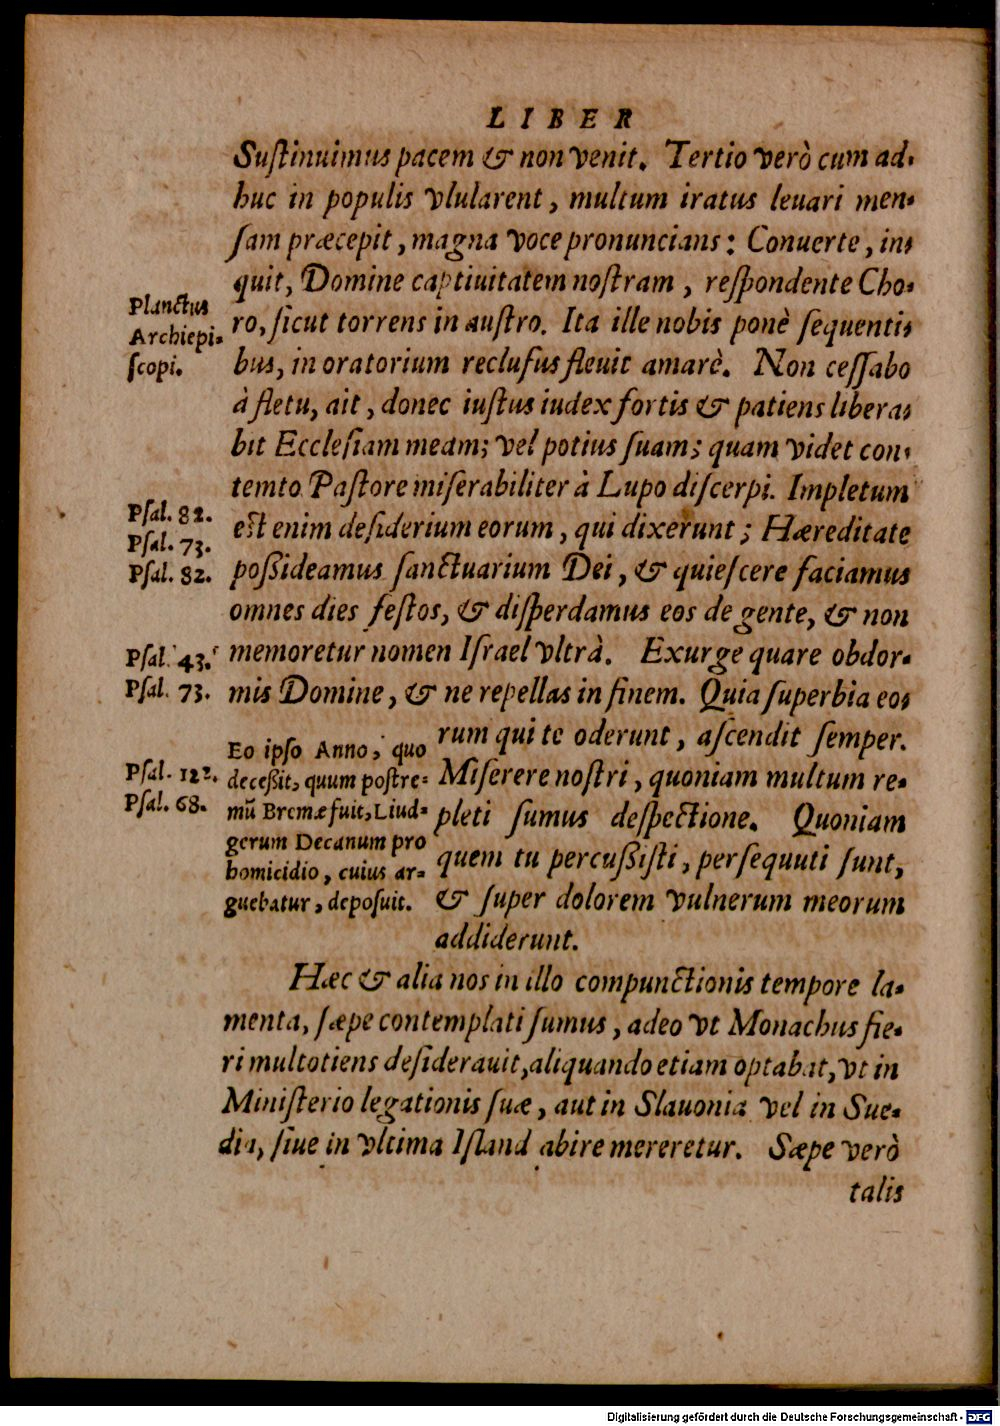 LIBER
Suſtinuimus pacem & non venit. Tertio verò cum ad-
huc in populis vlularent, multum iratus leuari men-
ſam præcepit, magna voce pronuncians: Conuerte, in-
quit, Domine captiuitatem noſtram, reſpondente Cho-
ro, ſicut torrens in auſtro. Ita ille nobis ponè ſequenti-
bus, in oratorium recluſus fleuit amarè. Non ceſſabo
à fletu, ait, donec iuſtus iudex fortis & patiens libera-
bit Eccleſiam meam; vel potius ſuam; quam videt con-
temto Paſtore miſerabiliter à Lupo diſcerpi. Impletum
eſt enim deſiderium eorum, qui dixerunt; Hæreditate
poßideamus ſanctuarium Dei, & quieſcere faciamus
omnes dies feſtos, & diſperdamus eos de gente, & non
memoretur nomen Iſrael vltrà. Exurge quare obdor-
mis Domine, & ne repellas in finem. Quia ſuperbia eo-
rum qui te oderunt, aſcendit ſemper.
Miſerere noſtri, quoniam multum re-
pleti ſumus deſpectione. Quoniam
quem tu percußiſti, perſequuti ſunt,
& ſuper dolorem vulnerum meorum
addiderunt.
Hæc & alia nos in illo compunctionis tempore la-
menta, ſæpe contemplati ſumus, adeo vt Monachus fie-
ri multotiens deſiderauit, aliquando etiam optabat, vt in
Miniſterio legationis ſuæ, aut in Slauonia vel in Sue-
dia, ſiue in vltima Iſland abire mereretur. Sæpe verò
talis
Planctus
Archiepi-
ſcopi.
Pſal. 82.
Pſal. 73.
Pſal. 82.
Pſal. 43.
Pſal. 73.
Pſal. 122.
Pſal. 68.
Eo ipſo Anno, quo
deceßit, quum poſtre-
mũ Bremæ fuit, Liud-
gerum Decanum pro
homicidio, cuius ar-
guebatur, depoſuit.
Digitalisierung gefördert durch die Deutsche Forschungsgemeinschaft - DFG